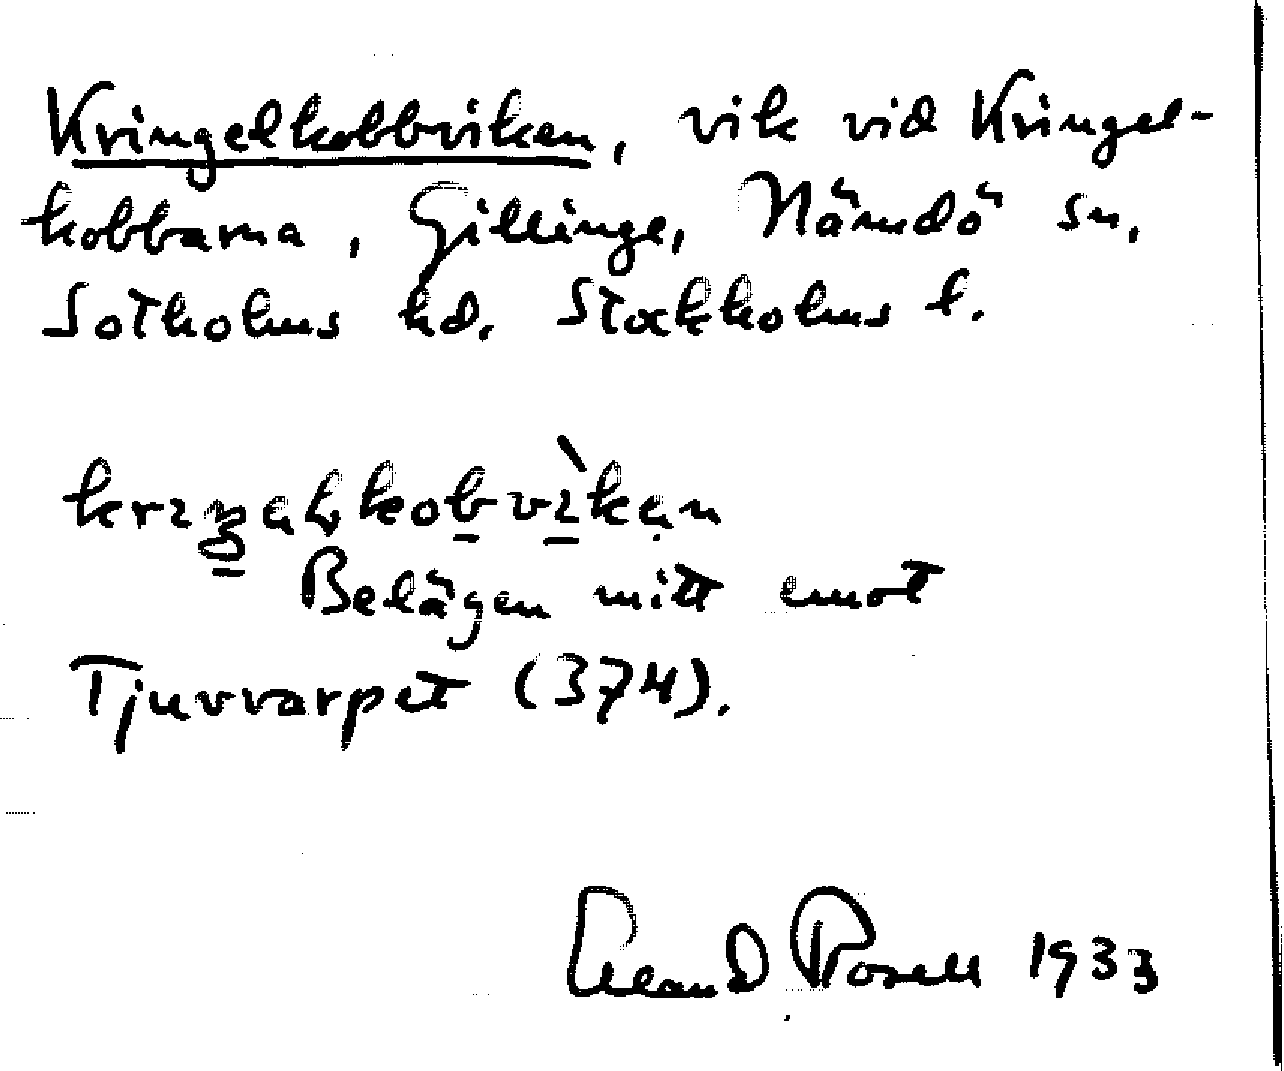 Kringelkobbviken, vik vid Kringel-
kobbarna, Gillinge, Nämdö sn,
Sotholms hd. Stockholms l.
Belägen mitt emot
Tjuvvarpet (374).
Erland Rosell 1933